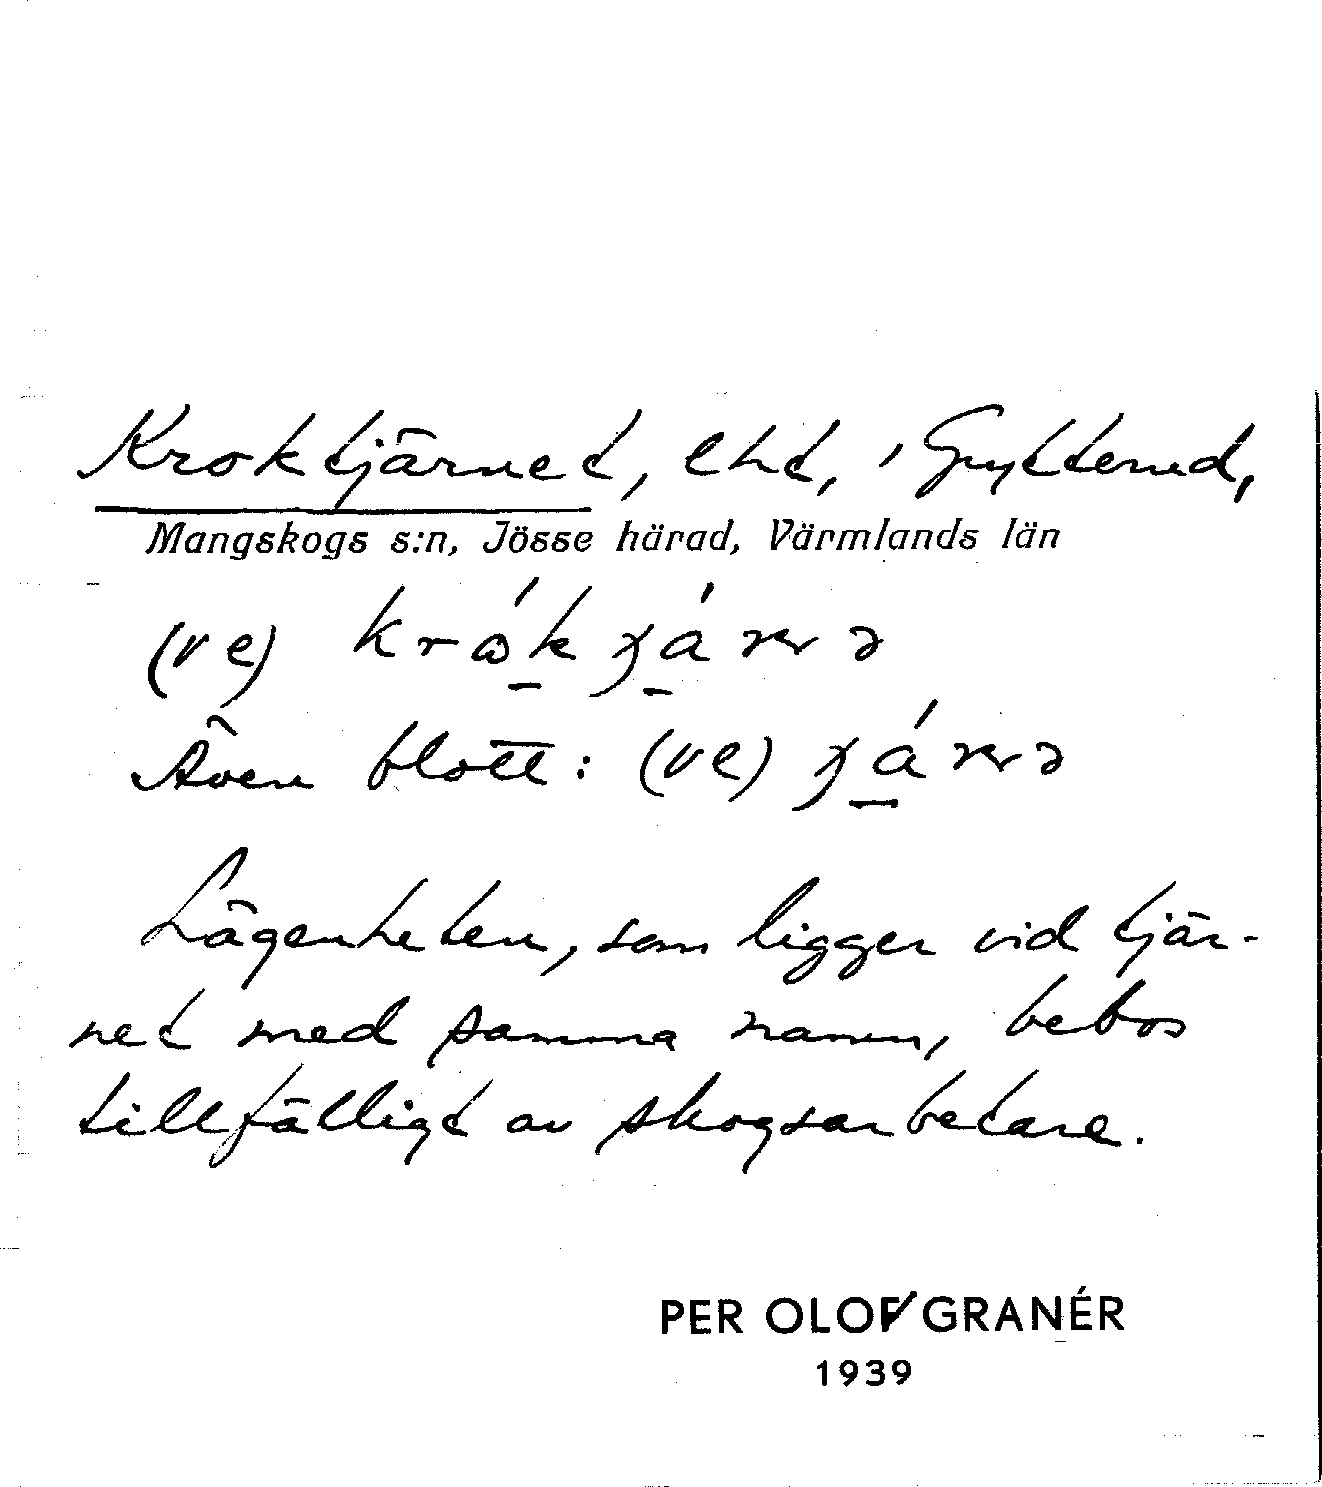 Kroktjärnet, lht, i Grytterud,
Mangskogs s:n, Jösse härad, Värmlands län
(ve)
Även blott: (ve)
Lägenheten, som ligger vid tjär-
net med samma namn, bebos
tillfälligt av skogsarbetare.
PER OLOF GRANÉR
1939